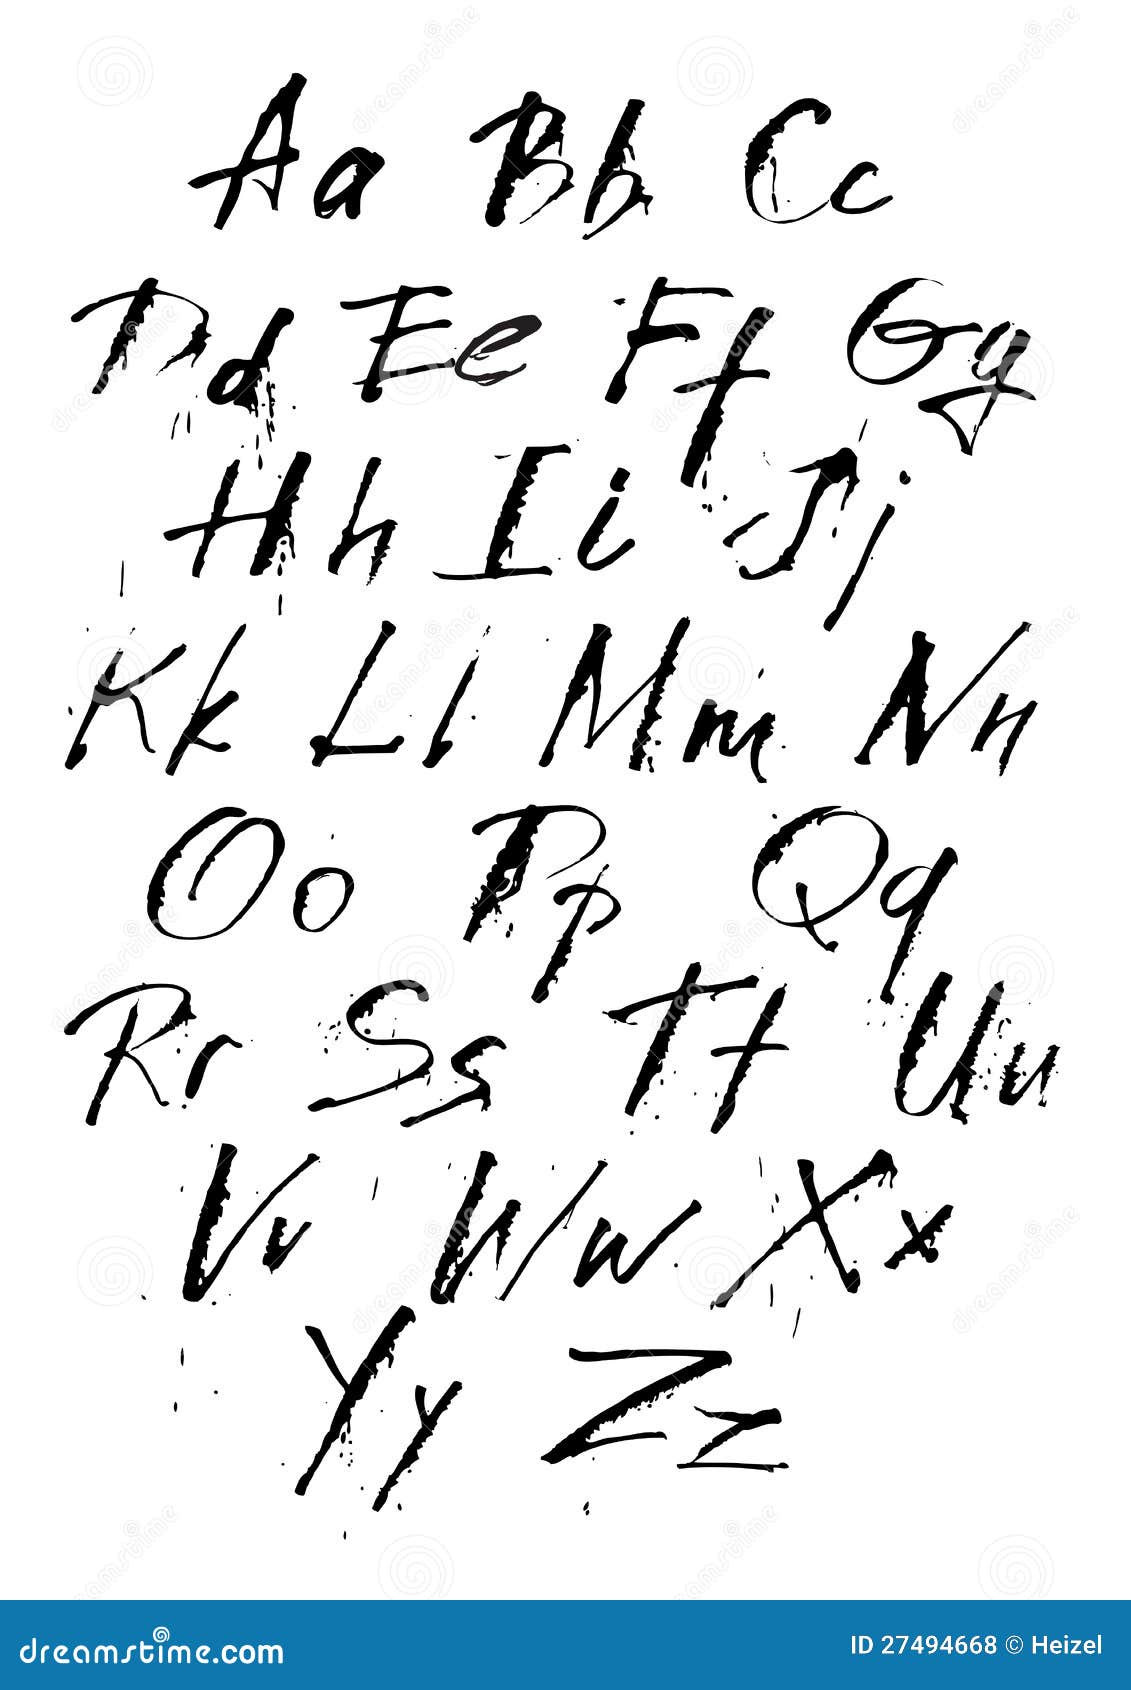 Aa Bb Cc
Dd Ee Ff Gg
Hh Ii Jj
Kk Ll Mm Nn
Oo Pp Qq
Rr Ss Tt Uu
Vv Ww Xx
Yy Zz
dreamstime.com ID 27494668 © Heizel